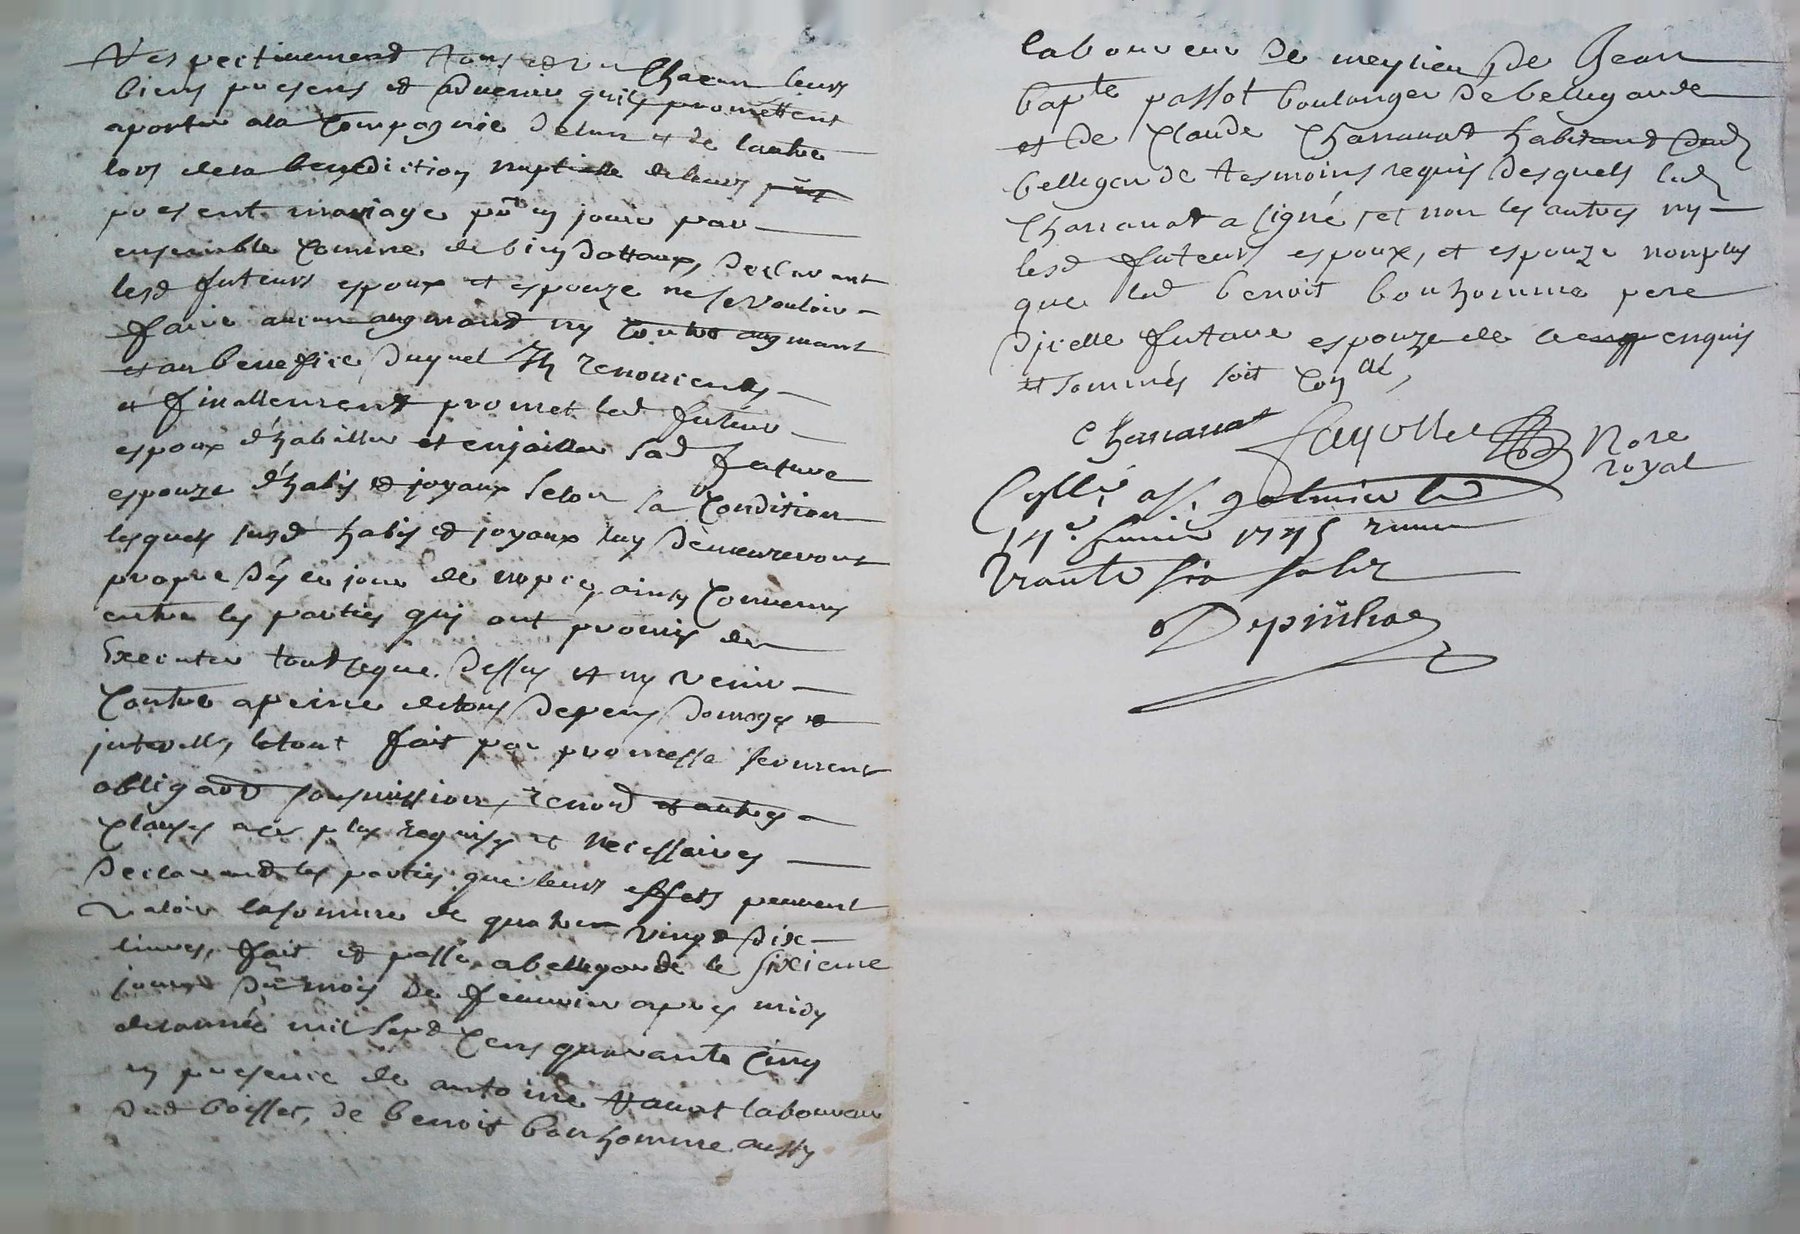 respectivement tous et un chacun leurs
biens presens et aduenir quils promettent
aporter ala Compagnie delun et de lautre
lors dela benediction nuptialle de leurs
present mariage pr en jouir par
ensemble Comme de bien dottaux, declarant
lesd futeurs espoux et espouze ne se vouloir
faire aucun augmand ny Contre augmant
et au benefice duquel Ils renoncent
et finallement promet led futeur
espoux d'habiller et enjoiller sad future
espouze d'habis et joyaux selon sa Condition
lesquels susd habis et joyaux luy demeureront
propre dés ce jour de nopces, ainsy Convenus
entre les parties qui ont promis de
Executer tout ceque dessus et ny venir
Contre apeine detous depens domages et
interests, letout fait par promesse serment
obligaon soumission, renond et autres
Clauses ace plus requises et necessaires
declarand les parties que leurs effets peuvent
valoir lasomme de quatre vingt dix
livres, fait et passé abellegarde le sixieme
jour du mois de feuvrier apres midy
delannée mil sept Cens quarante Cinq
en presence de antoine laboureur
dud boisset, de benoit bonhomme aussy
laboureur de meylieu, de Jean
bapte passot boulanger de bellegarde
et de Claude Charranat habitand dud
bellegarde tesmoins requis desquels led
Charranat a signé, et non les autres ny
lesd futeurs espoux, et espouze non plus
que led benoit bonhomme pere
dicelle future espouze de ce enquis
et sommés soit Con
Charranat Fayolle Nore
royal
Cyllé a St galmier le
14e feurier 1745 receu
trante six solz
Depinhac